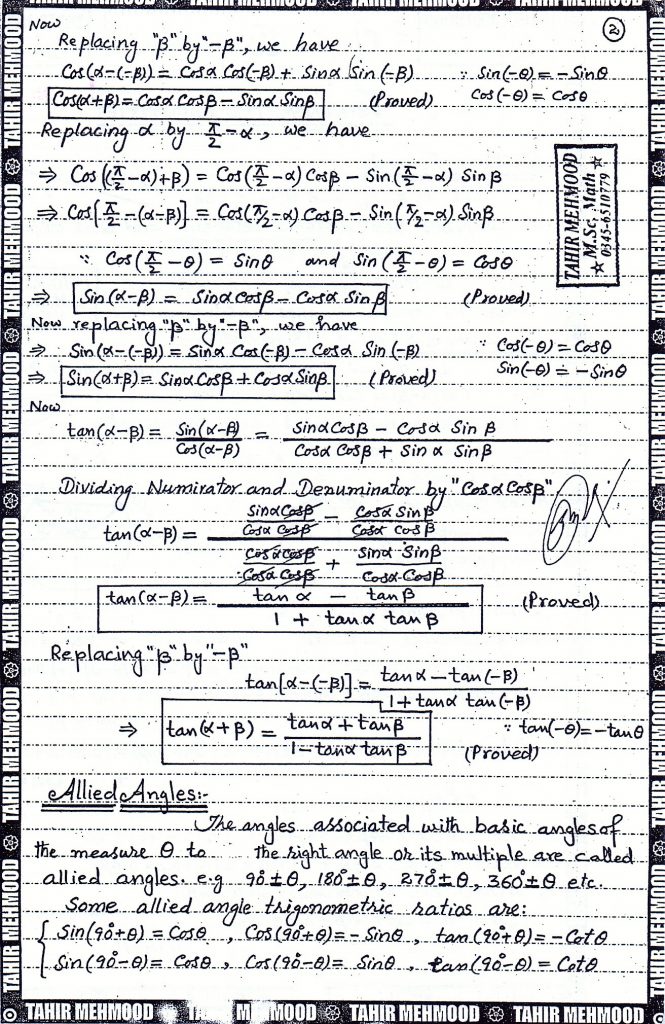 ②
Now
Replacing "β" by "-β", we have
Cos(α-(-β)) = Cosα Cos(-β) + Sinα Sin(-β) ∵ Sin(-θ) = -Sinθ
Cos(α+β) = Cosα Cosβ - Sinα Sinβ (Proved) Cos(-θ) = Cosθ
Replacing α by π/2 - α, we have
⇒ Cos((π/2 - α)+β) = Cos(π/2 - α) Cosβ - Sin(π/2 - α) Sinβ
⇒ Cos[π/2 - (α-β)] = Cos(π/2 - α) Cosβ - Sin(π/2 - α) Sinβ
∵ Cos(π/2 - θ) = Sinθ and Sin(π/2 - θ) = Cosθ
⇒ Sin(α-β) = Sinα Cosβ - Cosα Sinβ (Proved)
TAHIR MEHMOOD
M.Sc. Math
0345-6510779
Now replacing "β" by "-β", we have
⇒ Sin(α-(-β)) = Sinα Cos(-β) - Cosα Sin(-β) ∵ Cos(-θ) = Cosθ
⇒ Sin(α+β) = Sinα Cosβ + Cosα Sinβ (Proved) Sin(-θ) = -Sinθ
Now
tan(α-β) = Sin(α-β)/Cos(α-β) = (Sinα Cosβ - Cosα Sinβ)/(Cosα Cosβ + Sinα Sinβ)
Dividing Numirator and Denuminator by "Cosα Cosβ"
tan(α-β) = (Sinα Cosβ/Cosα Cosβ - Cosα Sinβ/Cosα Cosβ)/(Cosα Cosβ/Cosα Cosβ + Sinα Sinβ/Cosα Cosβ)
tan(α-β) = (tanα - tanβ)/(1 + tanα tanβ) (Proved)
Replacing "β" by "-β"
tan[α-(-β)] = (tanα - tan(-β))/(1 + tanα tan(-β))
⇒ tan(α+β) = (tanα + tanβ)/(1 - tanα tanβ) ∵ tan(-θ) = -tanθ
(Proved)
Allied Angles:-
The angles associated with basic angles of
the measure θ to the right angle or its multiple are called
allied angles. e.g 90°±θ, 180°±θ, 270°±θ, 360°±θ etc.
Some allied angle trigonometric ratios are:
{ Sin(90°+θ) = Cosθ, Cos(90°+θ) = -Sinθ, tan(90°+θ) = -Cotθ
Sin(90°-θ) = Cosθ, Cos(90°-θ) = Sinθ, tan(90°-θ) = Cotθ
TAHIR MEHMOOD TAHIR MEHMOOD TAHIR MEHMOOD